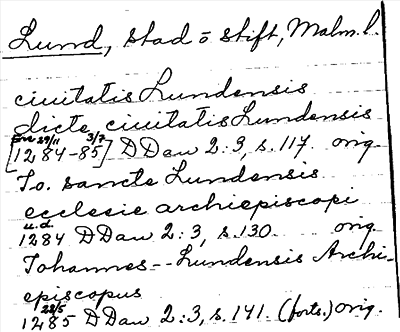 Lund, stad o stift, Malm. l.
ciuitatis Lundensis
dicte ciuitatis Lundensis
29/11 3/2
[1284-85] DDan 2:3, s.117. orig
Jo. sancte Lundensis
ecclesie archiepiscopi
u.d.
1284 DDan 2:3, s.130. orig.
Johannes -- Lundensis Archi-
episcopus
28/5
1285 DDan 2:3, s.141. (forts.) orig.